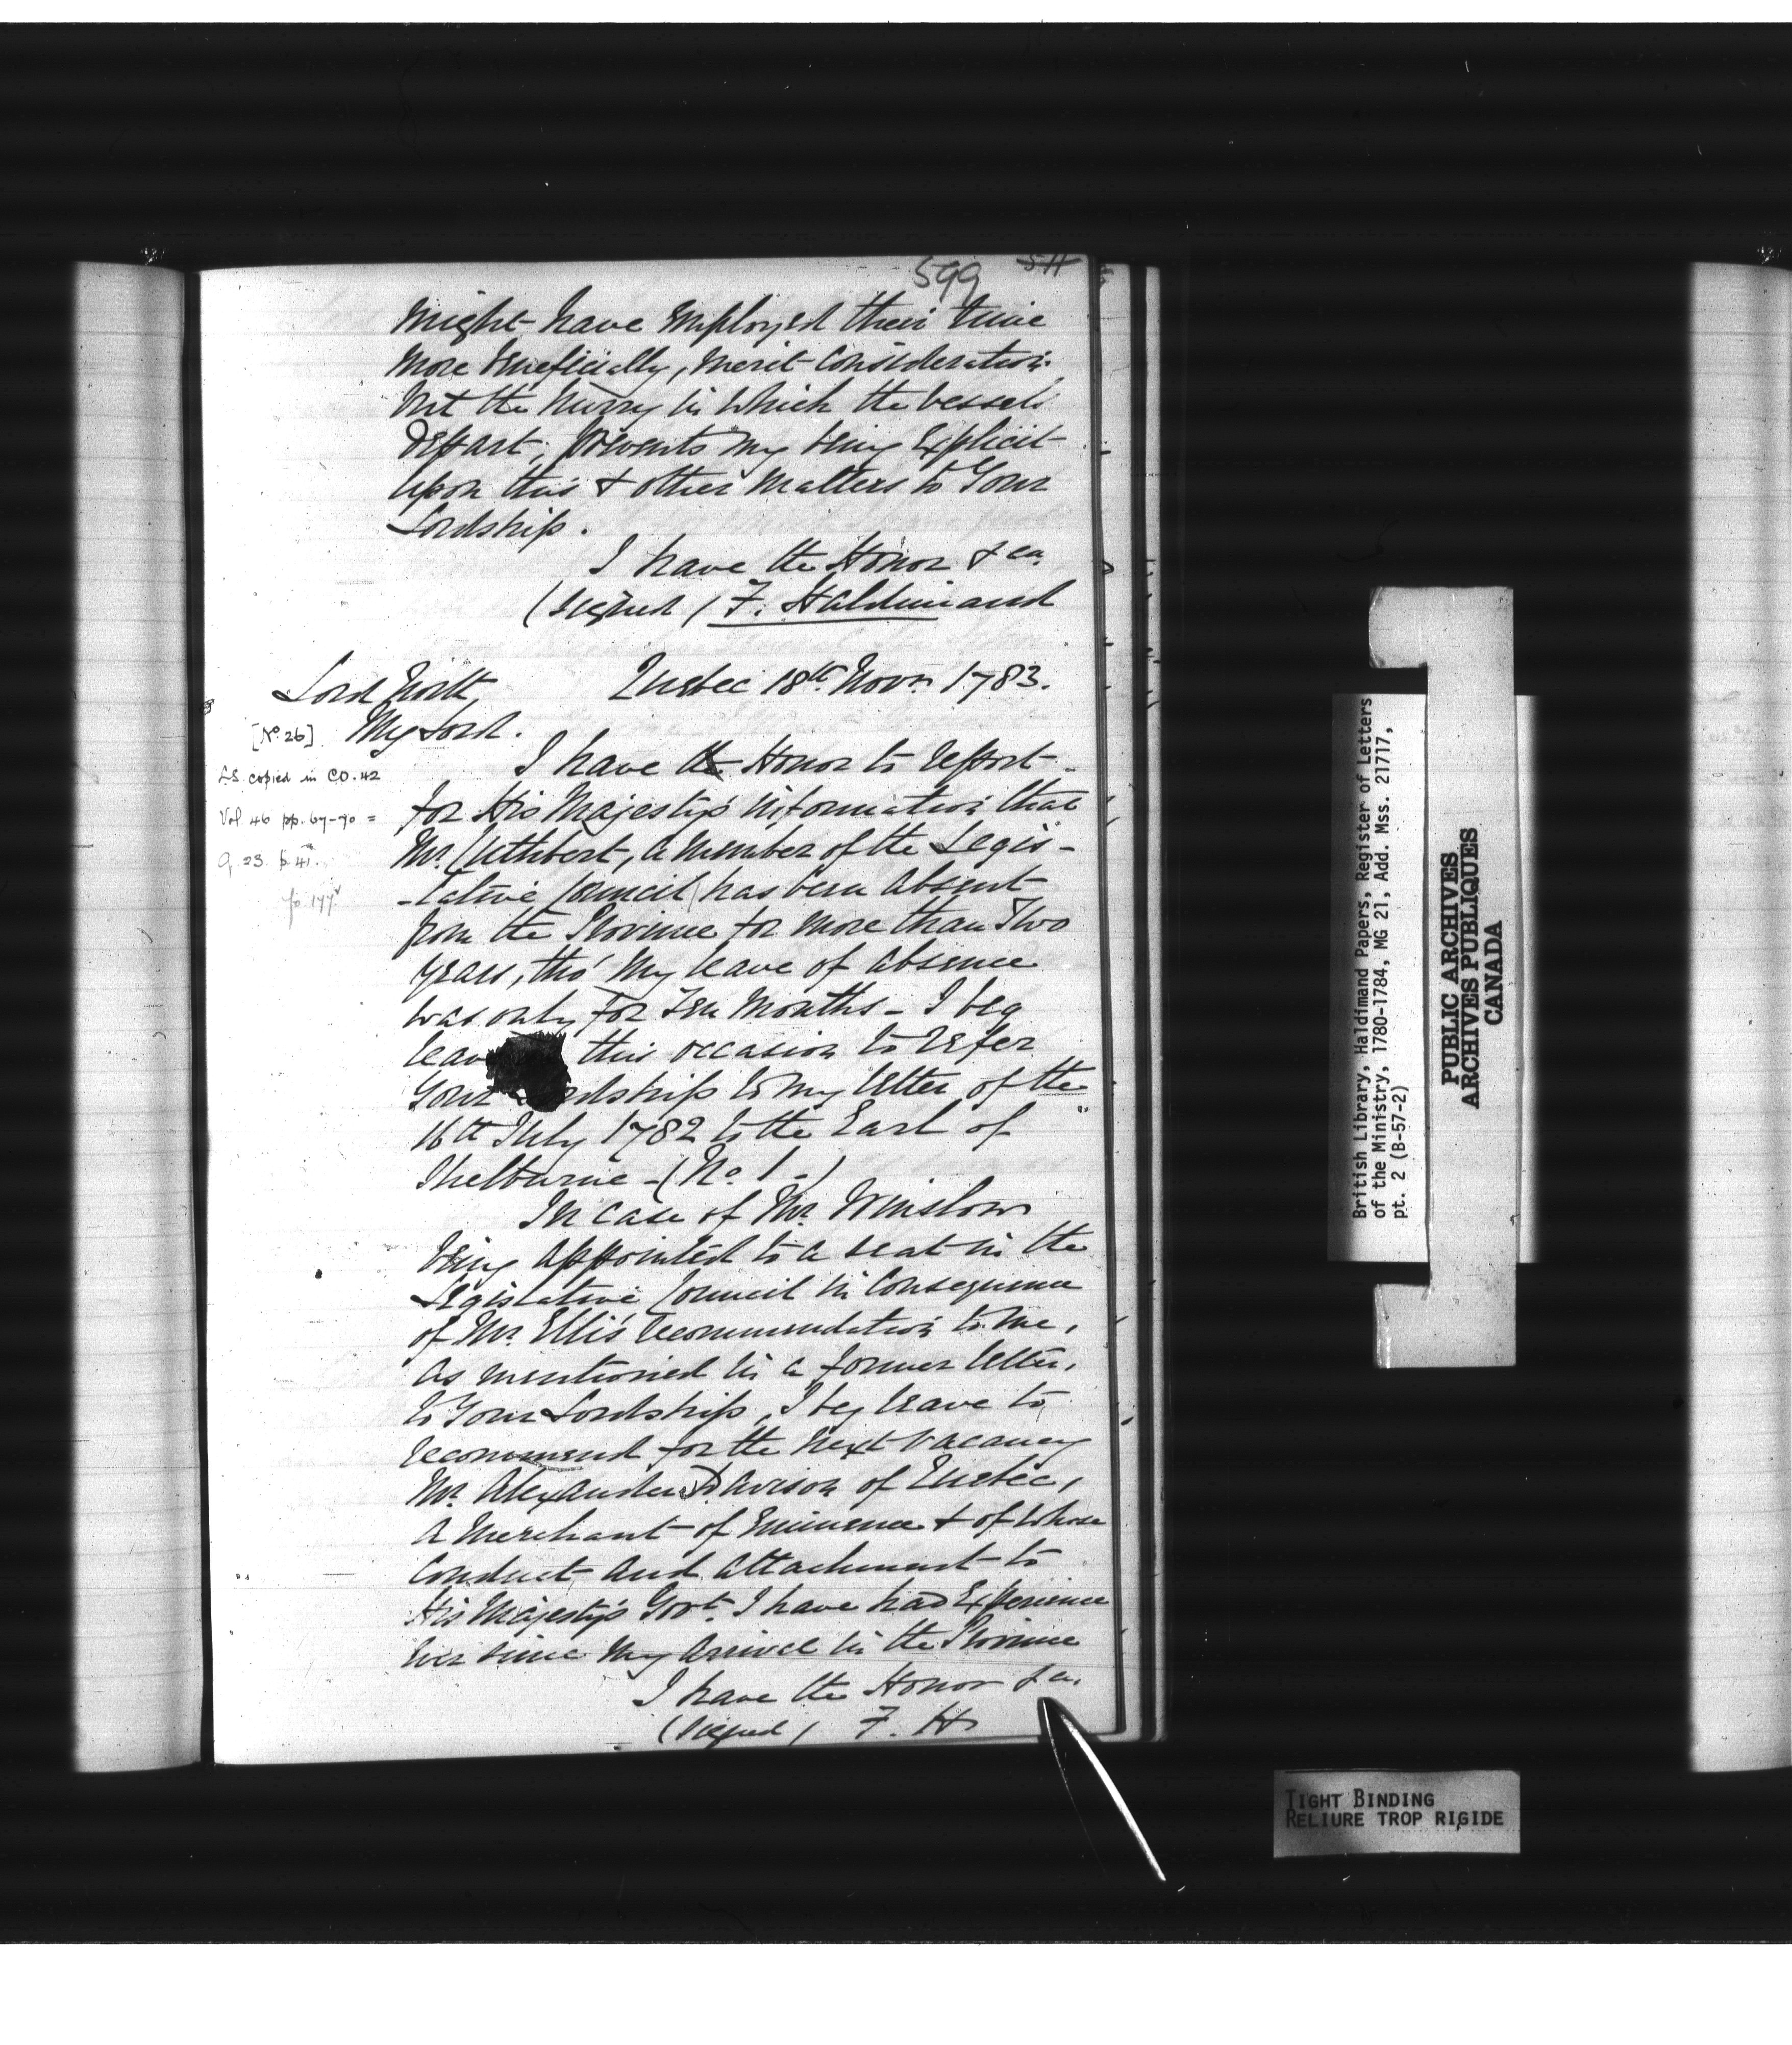 599 511
might have employed their time
more beneficially, merit consideration
but the hurry in which the vessels
depart, prevents my being Explicit
upon this & other matters to Your
Lordship.
I have the Honor & ca.
(signed) F. Haldimand
Lord North, Quebec 18th Novr. 1783.
[No. 26] My Lord.
I have the Honor to report
LS. copied in CO. 42
for His Majesty's information that
Vol. 46 pp. 67-70 =
Mr. Cuthbert, a member of the Legis-
Q. 23. p. 41.
-lative Council has been absent
fo. 177v
from the Province for more than Two
years, tho' my leave of absence
was only for Ten Months - I beg
leav this occasion to refer
Your ordship to my letter of the
16th July 1782 to the Earl of
Shelburne - (No. 1.)
In case of Mr. Winslow
being appointed to a seat in the
Legislative Council in consequence
of Mr. Ellis' recommendation to me,
as mentioned in a former letter,
to Your Lordship, I beg leave to
recommend for the next vacancy
Mr. Alexander Davison of Quebec,
a Merchant of Eminence & of whose
conduct and attachment to
His Majesty's Govt. I have had Experience
ever since my arrival in the Province
I have the Honor & ca.
(signed) F. H
British Library, Haldimand Papers, Register of Letters
of the Ministry, 1780-1784, MG 21, Add. Mss. 21717,
pt. 2 (B-57-2)
PUBLIC ARCHIVES
ARCHIVES PUBLIQUES
CANADA
TIGHT BINDING
RELIURE TROP RIGIDE